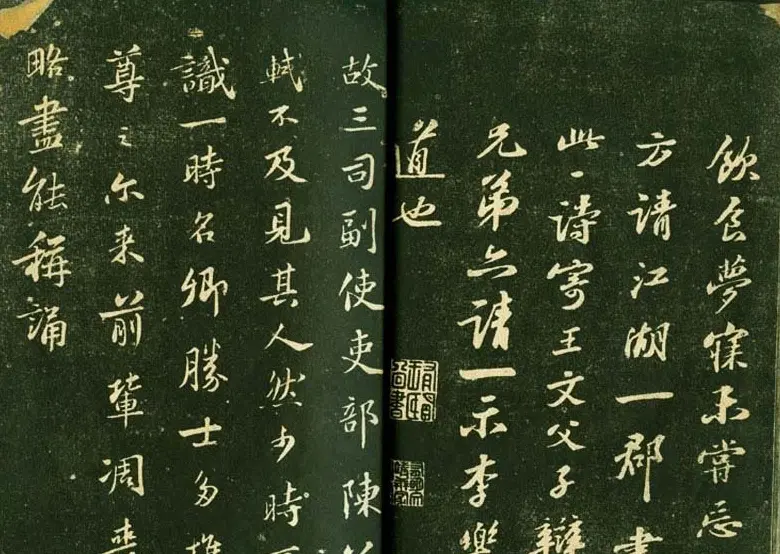 飲食夢寐未嘗忘
方請江湖一郡書
此一詩寄王文父子辯
兄弟亦請一示李樂
道也
故三司副使吏部陳
軾不及見其人然少時
識一時名卿勝士多推
尊之尔来前輩凋喪
略盡能稱誦